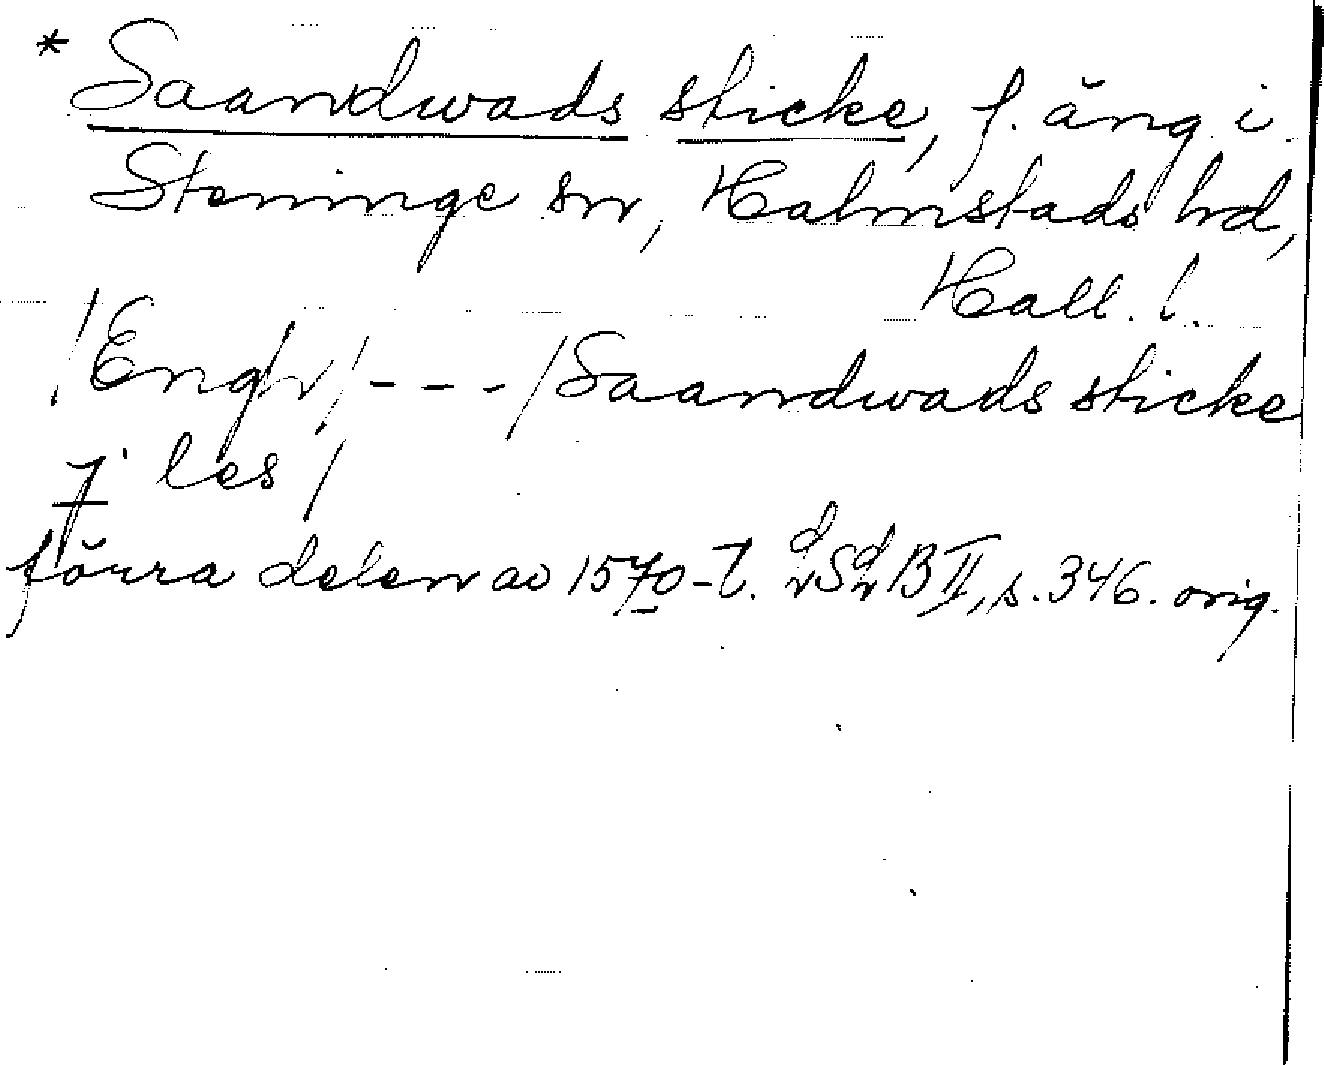 * Saandwads sticke, f. äng i
Steninge sn, Halmstads hd,
Hall. l.
/Engh/ - - - /Saandwads sticke
j les/
förra delen av 1570-t. B II, s. 346. orig.